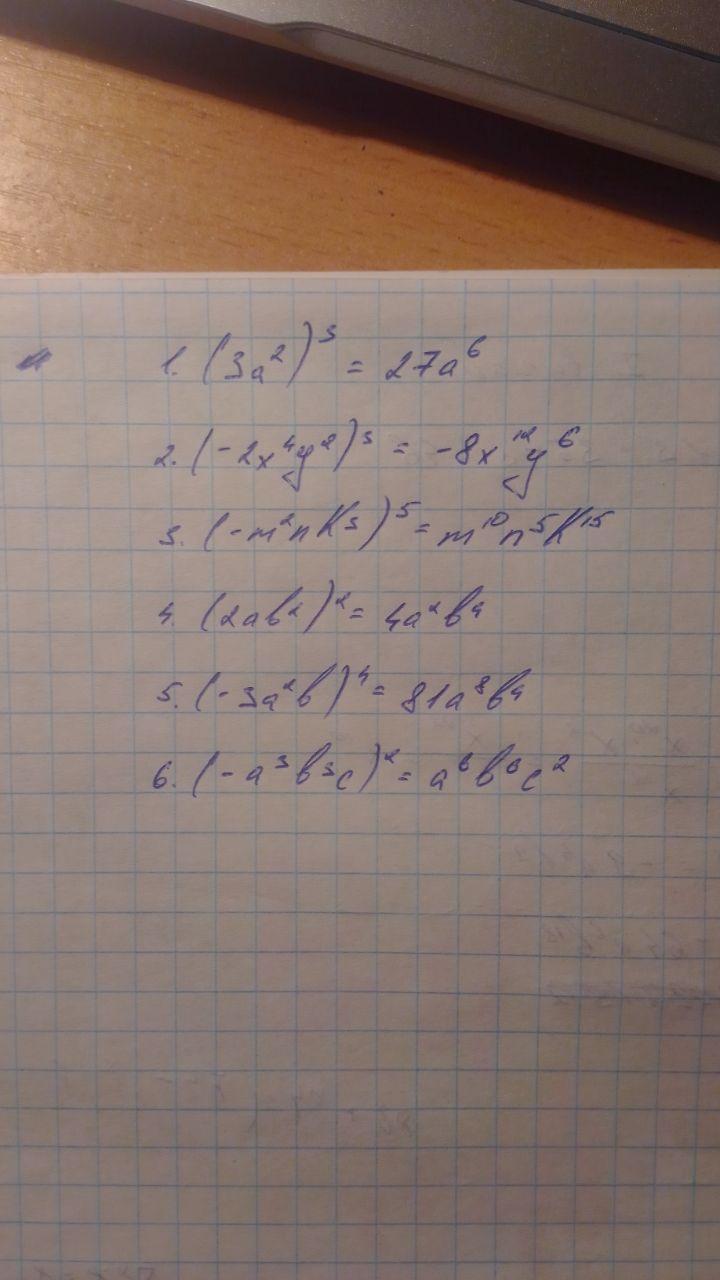 1. (3a²)³ = 27a⁶
2. (-2x⁴y²)³ = -8x¹²y⁶
3. (-m²nk³)⁵ = m¹⁰n⁵k¹⁵
4. (2ab²)² = 4a²b⁴
5. (-3a²b)⁴ = 81a⁸b⁴
6. (-a³b³c)² = a⁶b⁶c²